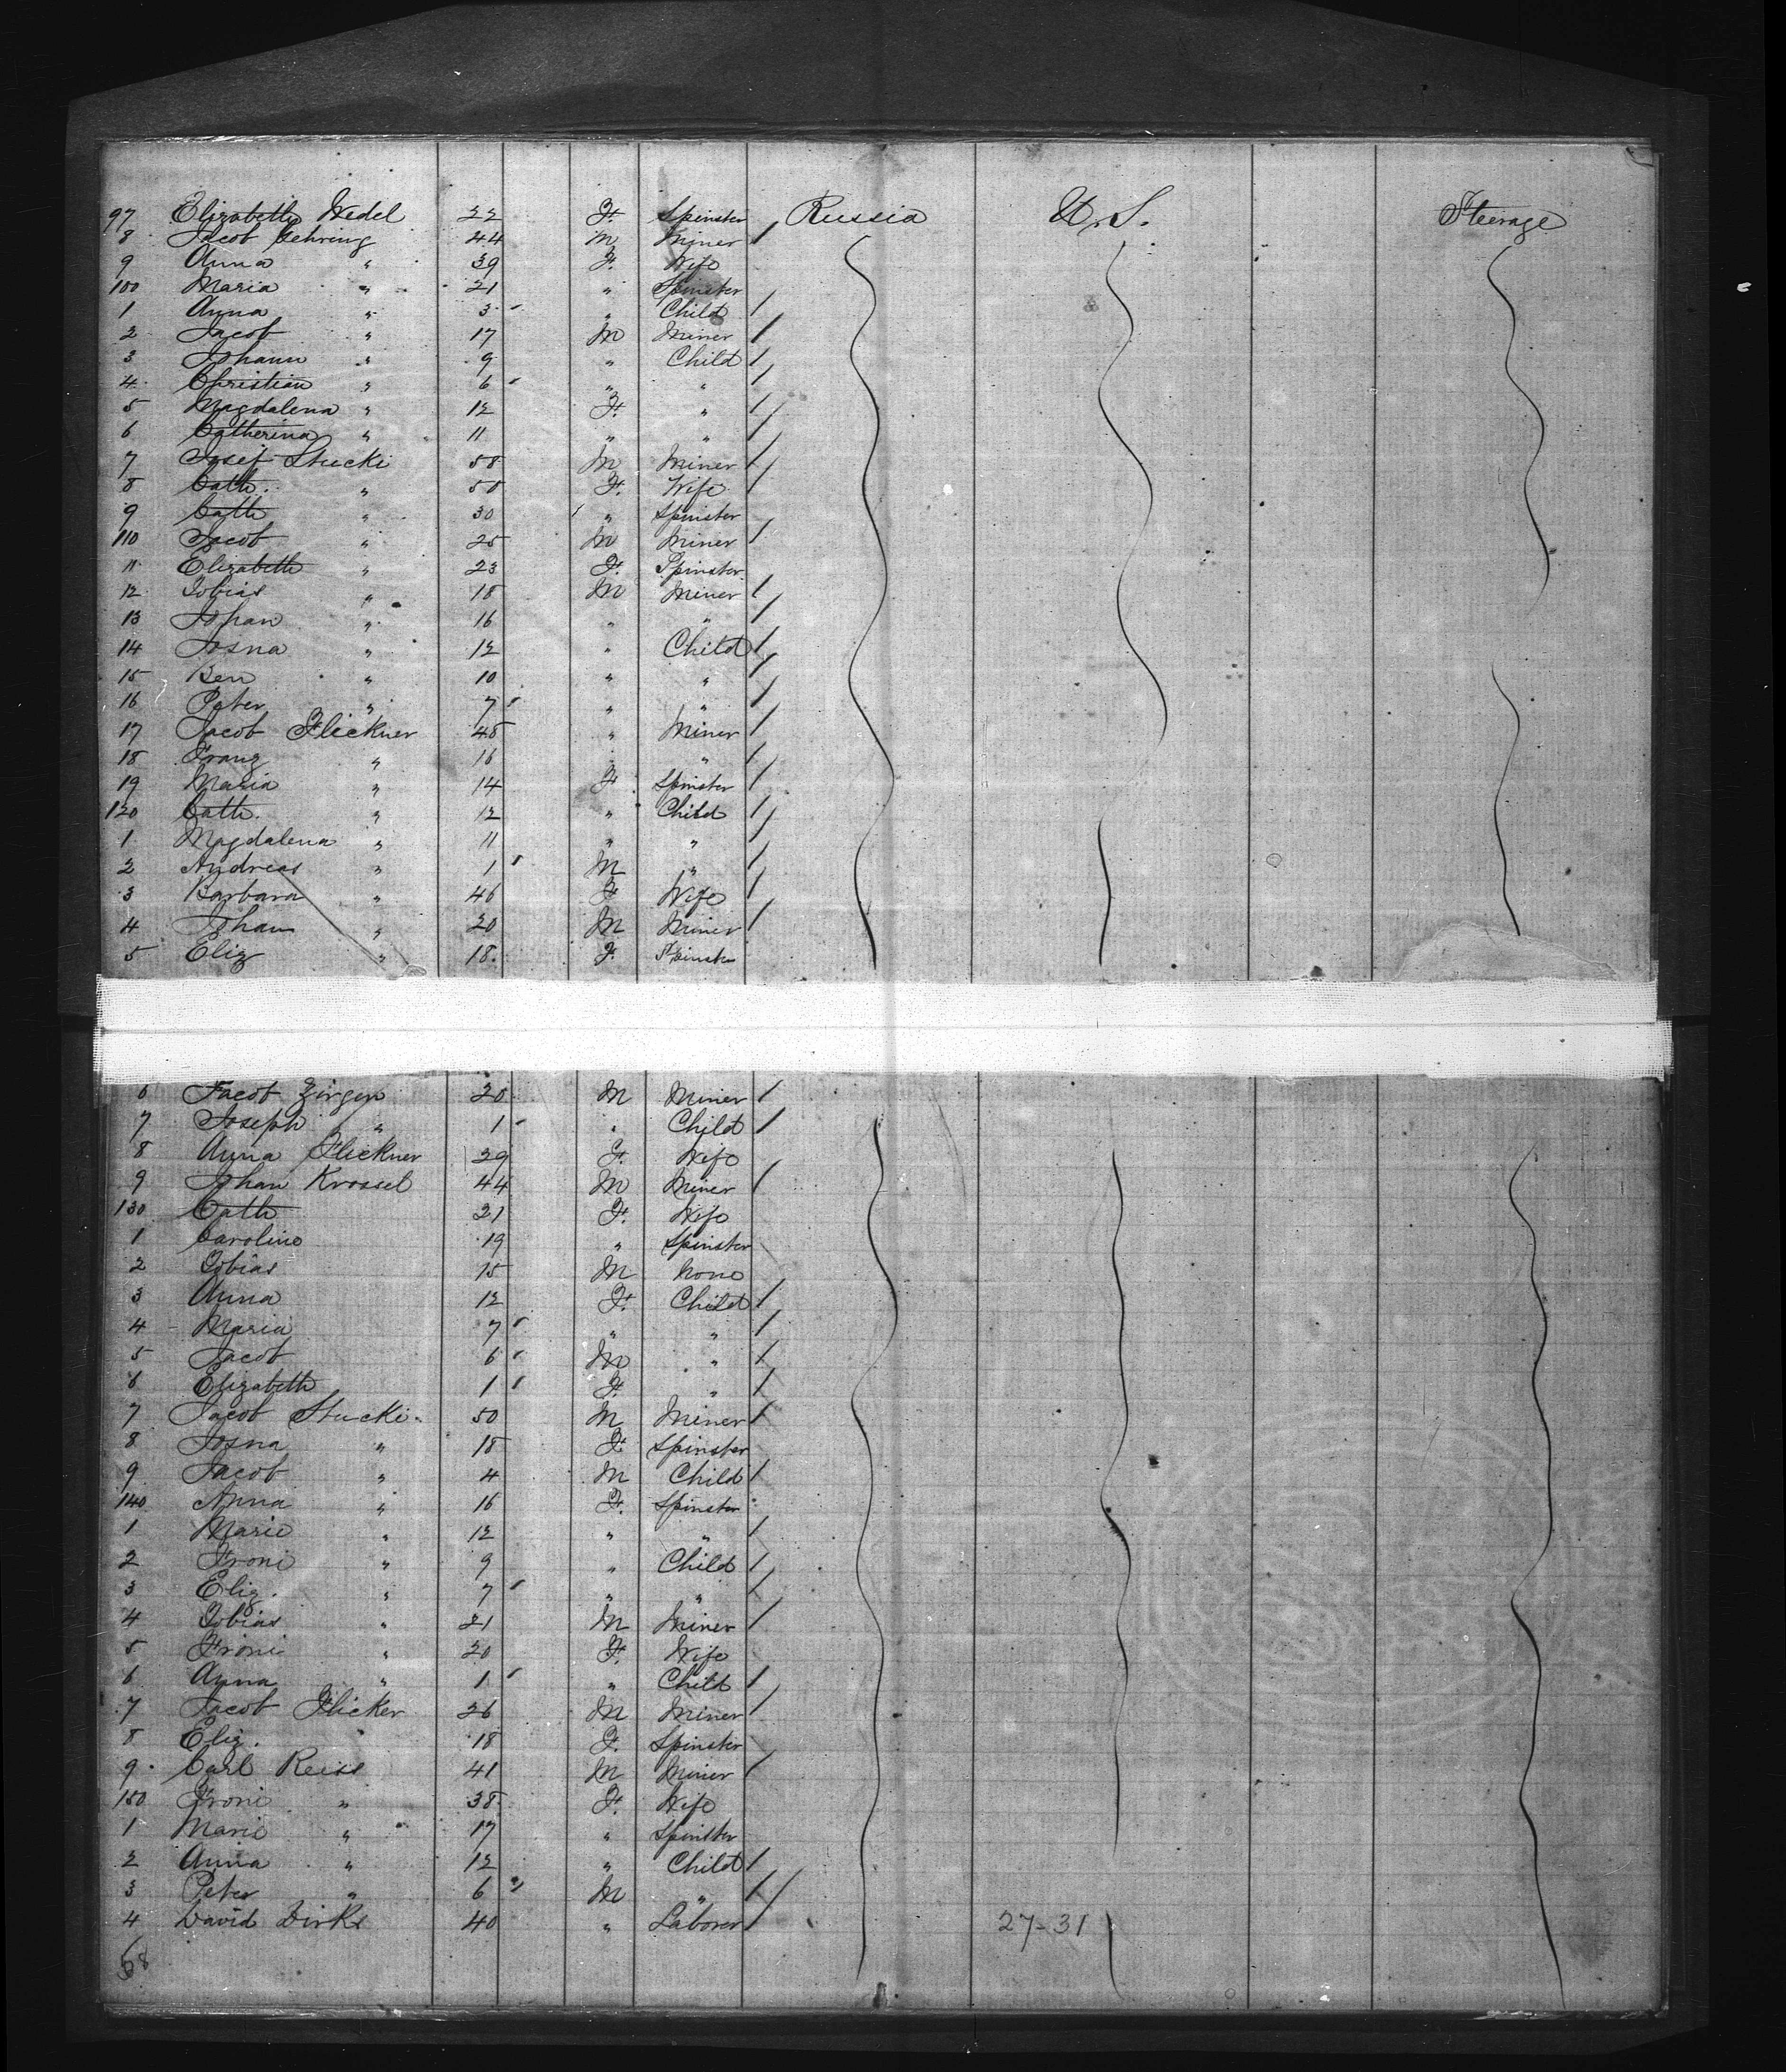 97 Elizabeth Wedel 22 F. Spinster Russia U.S. Steerage
8 Jacob Gehring 44 M Miner /
9 Anna " 39 F. Wife
100 Maria " 21 " Spinster
1 Anna " 3 " Child /
2 Jacob " 17 M Miner /
3 Johann " 9 " Child /
4 Christian " 6 " " /
5 Magdalena " 12 F. " /
6 Catherina " 11 " " /
7 Josef Stucki 58 M Miner /
8 Cath. " 50 F. Wife /
9 Cath " 30 " Spinster
110 Jacob " 25 M Miner /
11 Elizabeth " 23 F. Spinster
12 Tobias " 18 M Miner /
13 Johan " 16 " " /
14 Josna " 12 " Child /
15 Ben " 10 " " /
16 Peter " 7 " " /
17 Jacob Flickner 48 " Miner /
18 Franz " 16 " " /
19 Maria " 14 F Spinster /
120 Cath. " 12 " Child /
1 Magdalena " 11 " " /
2 Andreas " 1 M " /
3 Barbara " 46 F Wife /
4 Johan " 20 M Miner /
5 Eliz " 18. F. Spinster
6 Jacob Zirgen 20 M Miner /
7 Joseph " 1 " Child /
8 Anna Flickner 29 F. Wife
9 Johan Krossel 44 M Miner /
130 Cath 21 F. Wife
1 Caroline 19 " Spinster
2 Tobias 15 M None
3 Anna 12 F. Child /
4 Maria 7 " " /
5 Jacob 6 M " /
6 Elizabeth 1 F. " /
7 Jacob Stucki 50 M Miner /
8 Josna " 18 F. Spinster
9 Jacob " 4 M Child /
140 Anna " 16 F. Spinster
1 Marie " 12 " " /
2 Froni " 9 " Child /
3 Eliz. " 7 " " /
4 Tobias " 21 M Miner /
5 Froni " 20 F. Wife
6 Anna " 1 " Child /
7 Jacob Flicker 26 M Miner /
8 Eliz. " 18 F. Spinster
9 Carl Reiss 41 M Miner /
150 Froni " 38 F. Wife
1 Marie " 17 " Spinster
2 Anna " 12 " Child /
3 Peter " 6 M " /
4 David Dirks 40 " Laborer / 27-31
68